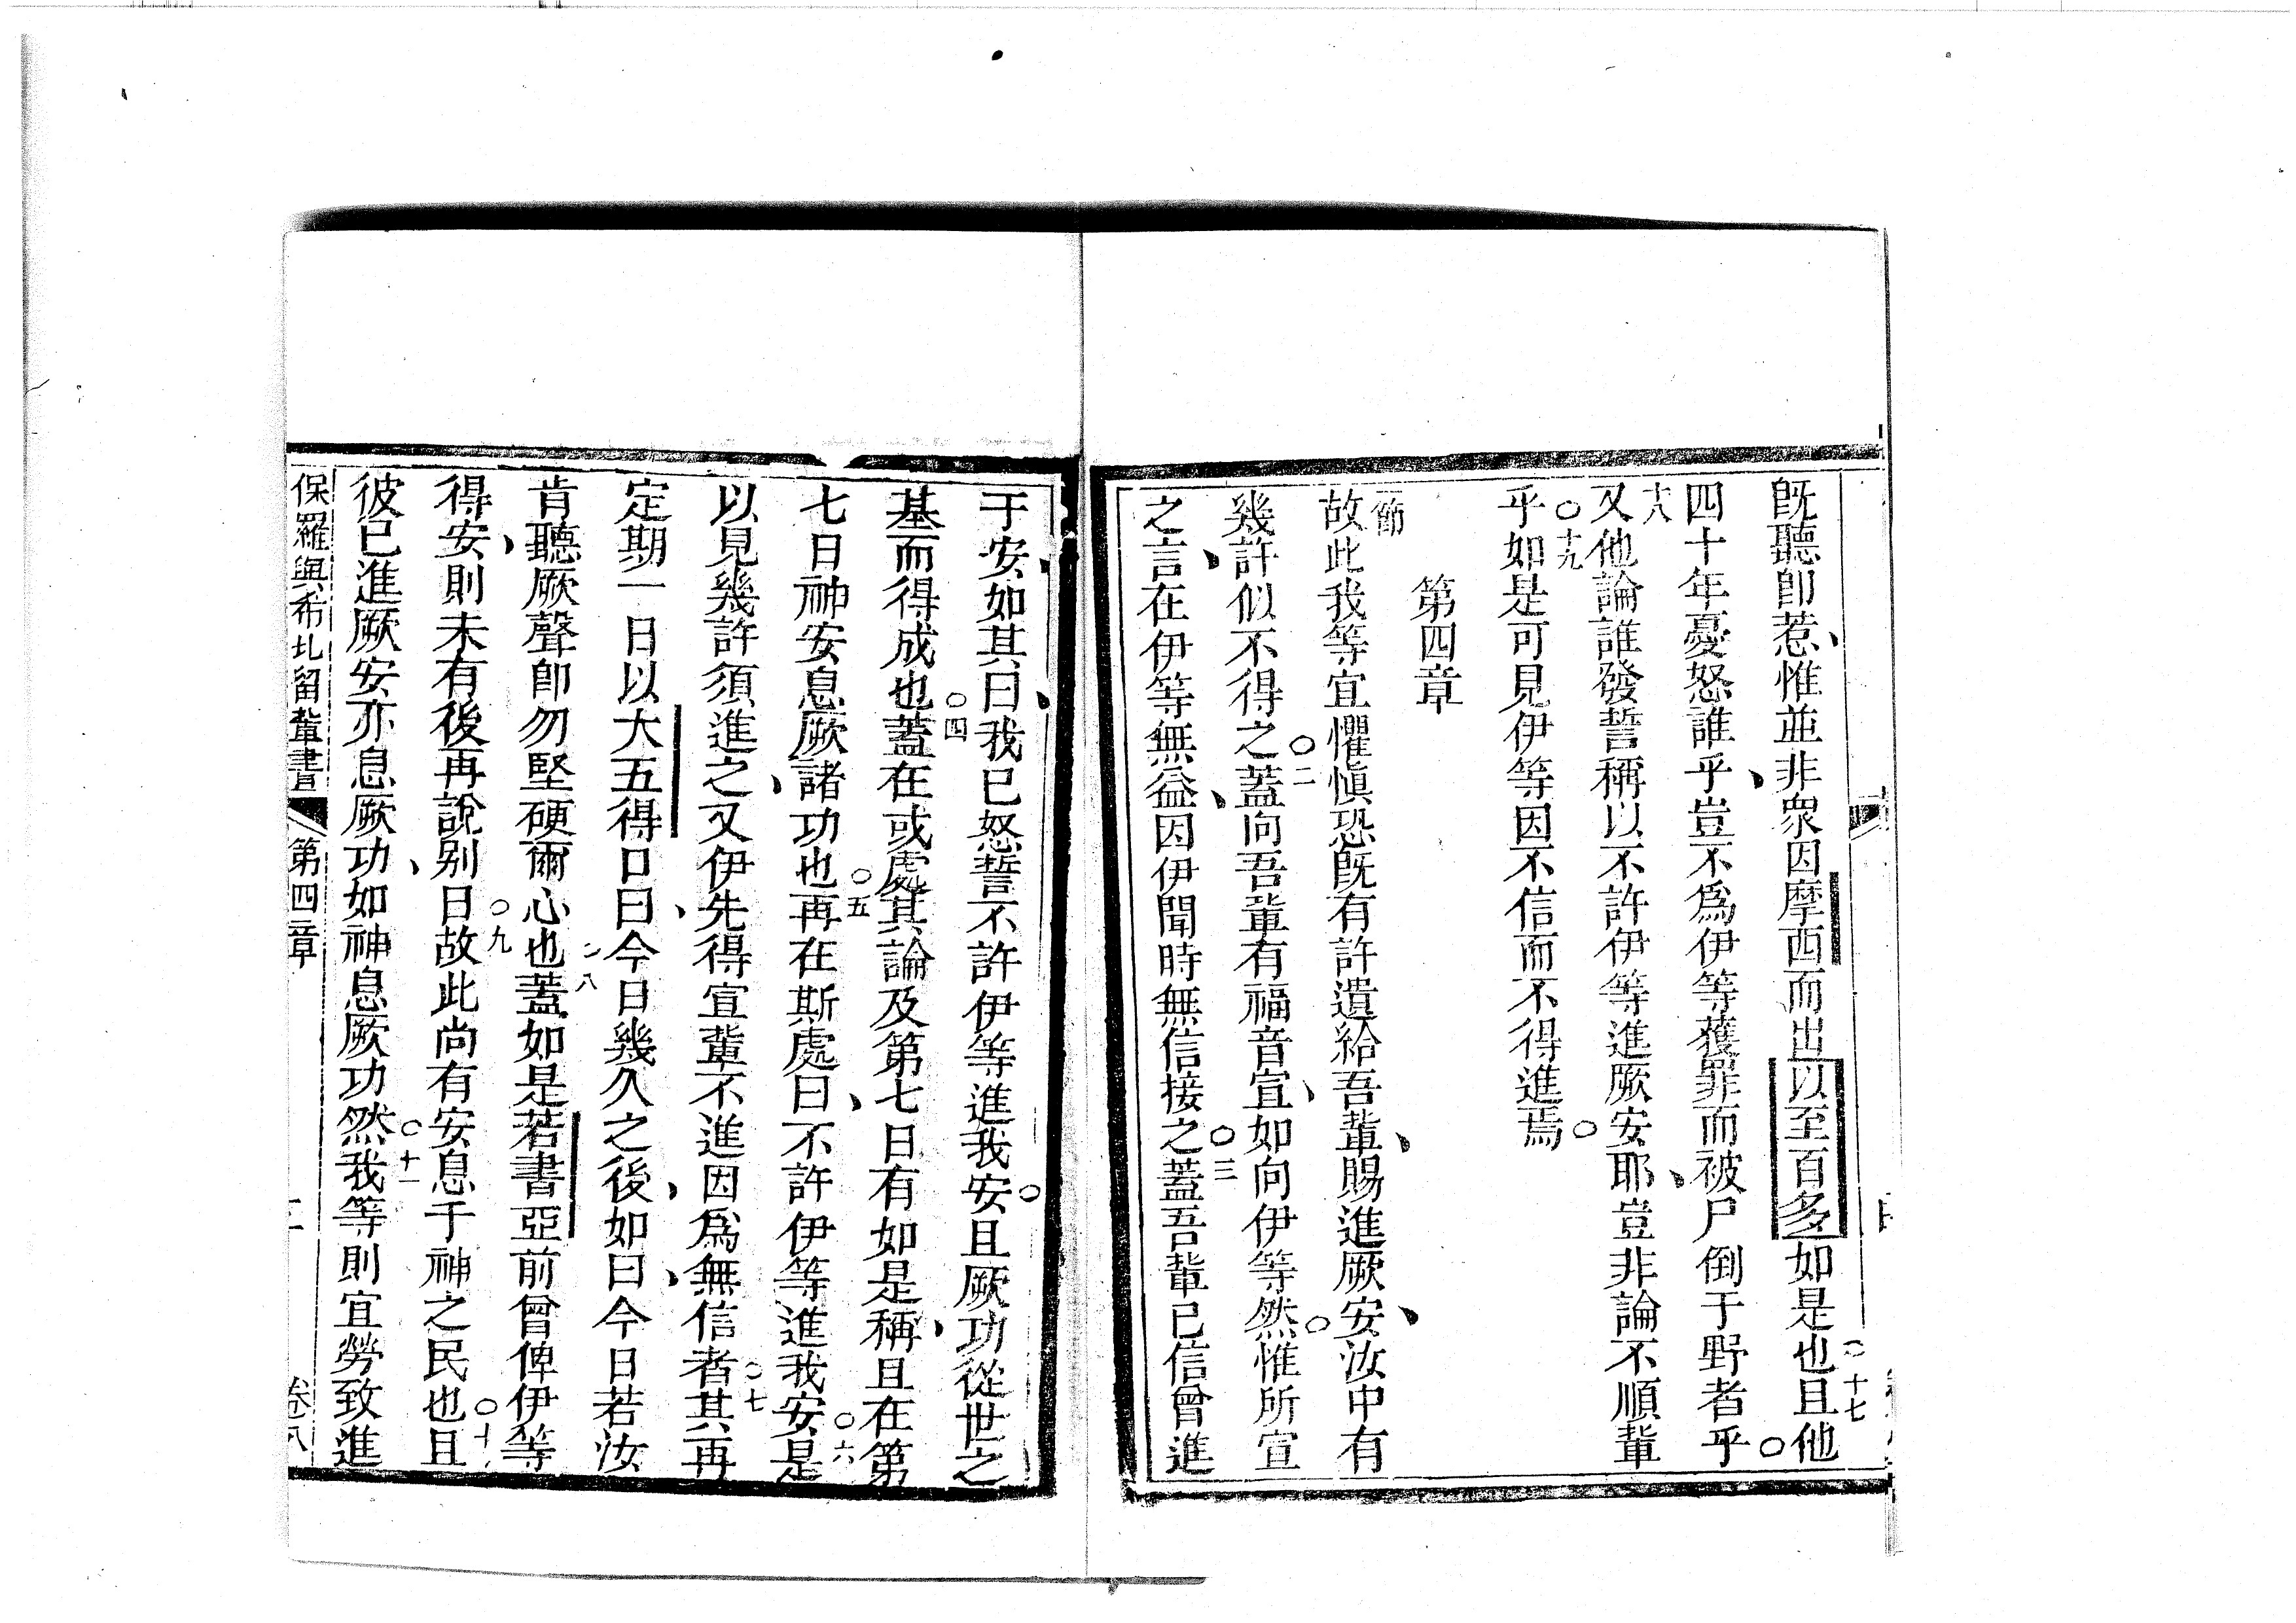 既聽卽惹、惟並非衆因摩西而出以至百多如是也○十七且他
四十年憂怒誰乎、豈不爲伊等獲罪而被尸倒于野者乎○
十八又他論誰發誓稱以不許伊等進厥安耶、豈非論不順輩
乎○十九如是可見伊等因不信而不得進焉○
第四章
一節故此我等宜懼愼恐既有許遺給吾輩、賜進厥安、汝中有
幾許似不得之○二蓋向吾輩有福音宣、如向伊等然○惟所宣
之言、在伊等無益、因伊聞時無信接之○三蓋吾輩已信曾進
于安、如其曰、我已怒誓不許伊等進我安○且厥功從世之
基而得成也○四蓋在或處其論及第七日有如是稱、且在第
七日神安息厥諸功也○五再在斯處曰、不許伊等進我安○六是
以見幾許須進之、又伊先得宣輩不進因爲無信者○七其再
定期一日以大五得口曰、今日幾久之後、如曰、今日若汝
肯聽厥聲卽勿堅硬爾心也○八蓋如是若書亞前曾俾伊等
得安、則未有後再說别日○九故此尚有安息于神之民也○十且
彼已進厥安亦息厥功、如神息厥功○十一然我等則宜勞致進
保羅與希比留輩書 第四章 二 卷八